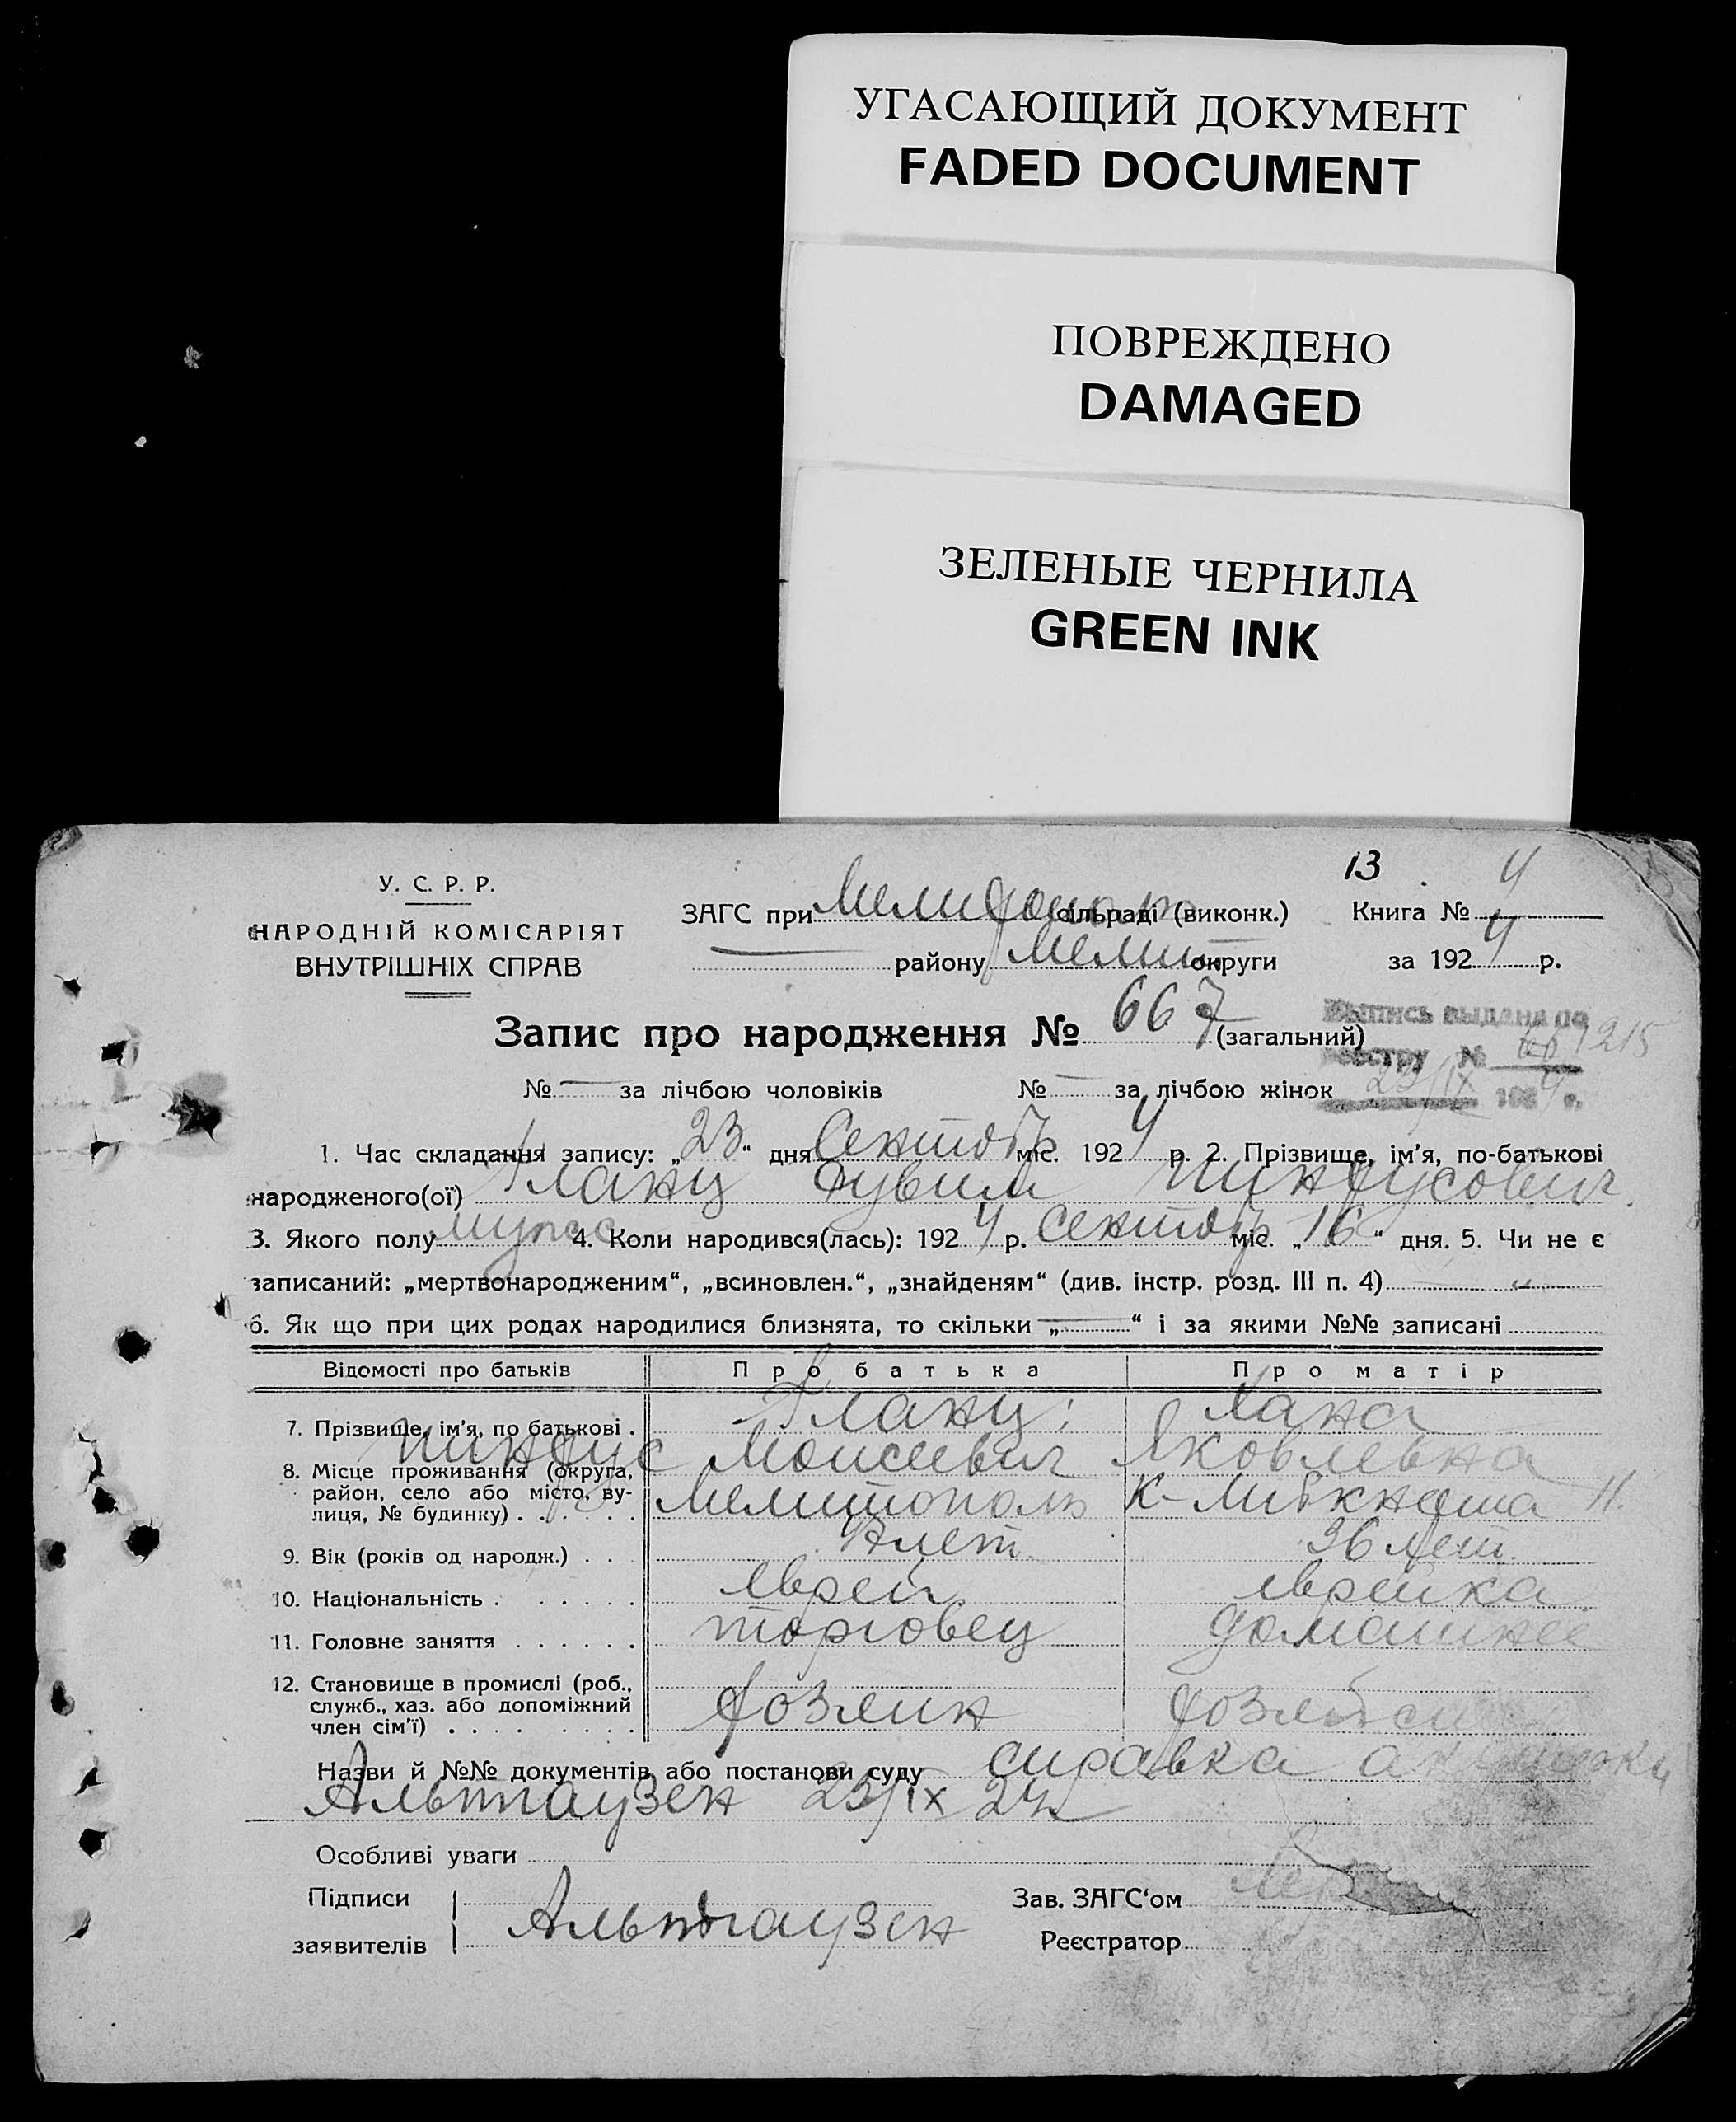 УГАСАЮЩИЙ ДОКУМЕНТ
FADED DOCUMENT
ПОВРЕЖДЕНО
DAMAGED
ЗЕЛЕНЫЕ ЧЕРНИЛА
GREEN INK
13
У. С. Р. Р.
НАРОДНІЙ КОМІСАРІЯТ
ВНУТРІШНІХ СПРАВ
ЗАГС при Мелитополь сільраді (виконк.) Книга № 4
району Мелит округи за 1924 р.
Запис про народження № 667 (загальний)
Выпись выдана по
реестру № 1215
23/IX 1924 г.
№ — за лічбою чоловіків № — за лічбою жінок
1. Час складання запису: „23“ дня Сентябр міс. 1924 р. 2. Прізвище, ім’я, по-батькові
народженого(ої) Гланц Рувим Пинхусович
3. Якого полу мужс 4. Коли народився(лась): 1924 р. Сентябр міс. „16“ дня. 5. Чи не є
записаний: „мертвонародженим“, „всиновлен.“, „знайденям“ (див. інстр. розд. III п. 4) „
6. Як що при цих родах народилися близнята, то скільки „—“ і за якими №№ записані
Відомості про батьків Про батька Про матір
7. Прізвище, ім’я, по батькові . Гланц Хана
Пинхус Моисеевич Яковлевна
8. Місце проживання (округа,
район, село або місто, ву-
лиця, № будинку) . . . . . . Мелитополь К-Либкнехта 11.
9. Вік (років од народж.) . . . лет 36 лет.
10. Національність . . . . . . еврей еврейка
11. Головне заняття . . . . . . торговец домашнее
12. Становище в промислі (роб.,
служб., хаз. або допоміжний
член сім’ї) . . . . . . . . Хозяин хозяйст
Назви й №№ документів або постанови суду справка акушерки
Альтгаузен 23/IX 24
Особливі уваги
Підписи
заявителів Альтгаузен
Зав. ЗАГС‘ом
Реєстратор